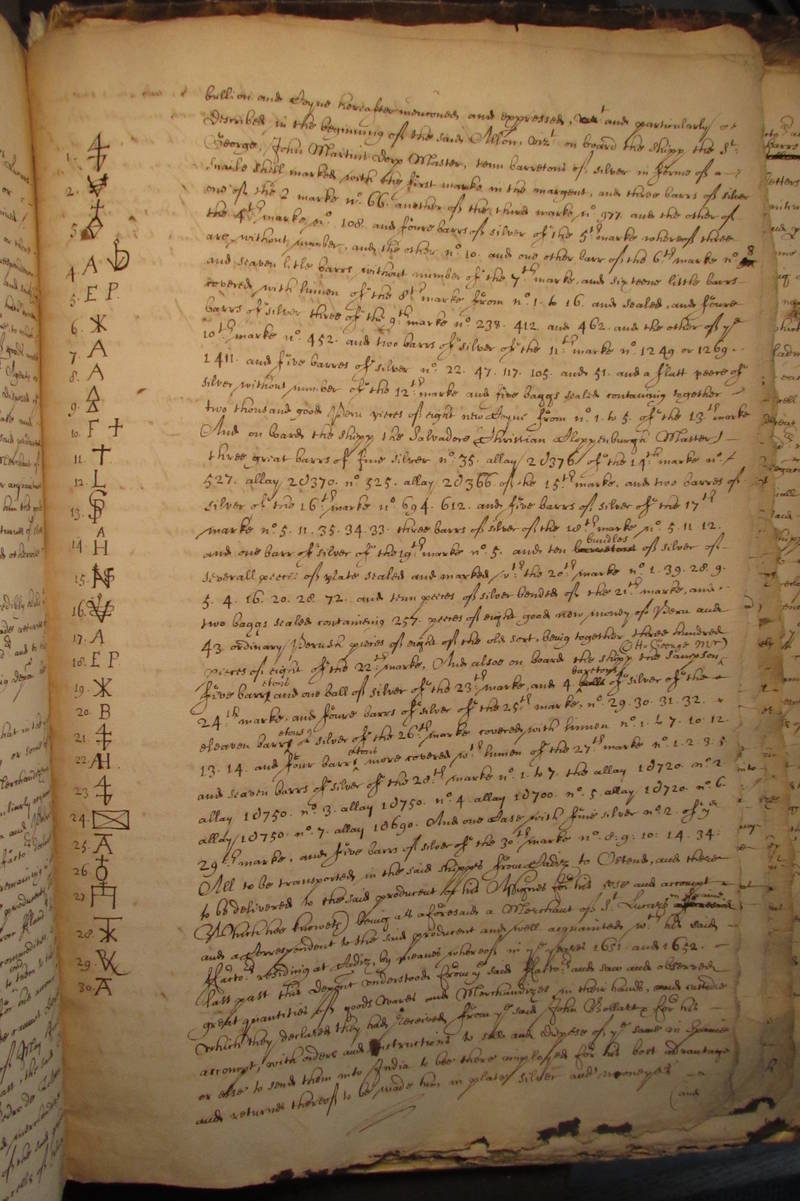 bullion and Coyne hereafter mencioned and expressed, and particularly
described in the beginning of the said Allon, vizt on board the shipp the St:
George, John Martins Dorp Master, tenn barretons of silver in forme of a
snaile shell marked with the first marke in the margent, and three barrs of silver
one of the 2 marke no. 66 another of the third marke no. 977. and the other of
the 4th marke no. 108. and foure barrs of silver of the 5th marke whereof three
are without number, and the other no. 10. and one other barr of the 6th marke no. 8
and seaven litle barrs without number of the 7th marke, and sixteene little barrs
covered with linnen of the 8th marke from no. 1. to 16. and sealed, and foure
barrs of silver three of the 9th marke no. 238. 412. and 462. and the other of ye
10th marke no. 452. and two barrs of silver of the 11th marke no. 1249 or 1269.
1411. and five barres of silver no. 22. 47. 117. 105. and 51. and a flatt peece of
silver without number of the 12th marke and five baggs sealed containing together
two thousand good Peru peices of eight new Coyne from no. 1. to 5. of the 13th marke
And on board the shipp the Salvadore (Christian Cloppenburgh Master)
three great barrs of fine silver no. 35. allay 2d376 of the 14th marke no.
527. allay 2d370. no. 525. allay 2d366 of the 15th marke. and two barres of
silver of the 16th marke no. 694. 612. and five barrs of silver of the 17th
marke no. 5. 11. 35. 34. 33. three barrs of silver of the 18th marke no. 5. 11. 12.
and one barr of silver of the 19th marke no. 5. and ten bundles of silver of
severall peeces of plate sealed and marked wth: the 20th marke no. 1. 39. 28. 9.
5. 4. 16. 20. 28. 72. and tenn peeces of silver bended of the 21th marke, and
two baggs sealed containing 257. peices of eight good new money of Peru and
43. ordinary Perush peeces of eight of the old sort, being together three hundred
peices of eight of the 22th marke, And alsoe on board the shipp the Sampson (H: George Mr)
five barretons and one ball of silver of the 23th marke, and 4 barretons of silver of the
24.th marke. and foure barrs of silver of the 25th marke, no. 29. 30. 31. 32.
eleaven barretons of silver of the 26th marke covered with linnen no. 1. to 7. 10. 12
13. 14. and four barretons more covered wth linnen of the 27th marke no. 1. 2. 3. 5
and seaven barrs of silver of the 28th marke no. 1. to 7. the allay 1d720. no. 2
allay 1d750. no. 3. allay 1d750. no. 4. allay 1d700. no. 5. allay 1d720 no. 6.
allay 1d750. no. 7. allay 1d690. And one Case with fine silver no. 2 of ye
29th marke, and five barrs of silver of the 30th marke no. 8: 9: 10: 14. 34:
All to be transported in the said shipps from Cadiz to Ostend, and there
to be delivered to the said producent or his Assignes for his use and accompt
(Which hee knoweth) being as aforesaid a Merchant of St. Lucars
and a Correspondent to the said producent and well acquainted wth his said
Factors residing at Cadiz, by meanes whereof in ye yeares 1651. and 1652.
last past this deponent understood from ye said Factors and saw and observed
great quantities of goods wares and Merchandizes in their hands, and custodie
which they declared they had received from ye said John Bollart for his
accompt, with orders and instructions to sell and dispose of ye same in Spaine
or else to send them into India to bee there imployed for his best advantage
and returnes thereof to be made him in plate, silver and moneyes
(and
1.
2.
3.
4. A
5. E P.
6.
7. A
8. A
9.
10. F +
11. †
12. L
13.
14. H
15.
16.
17. A
18. E P
19.
20. B
21.
22.
23.
24.
25. A
26.
27
28.
29.
30.